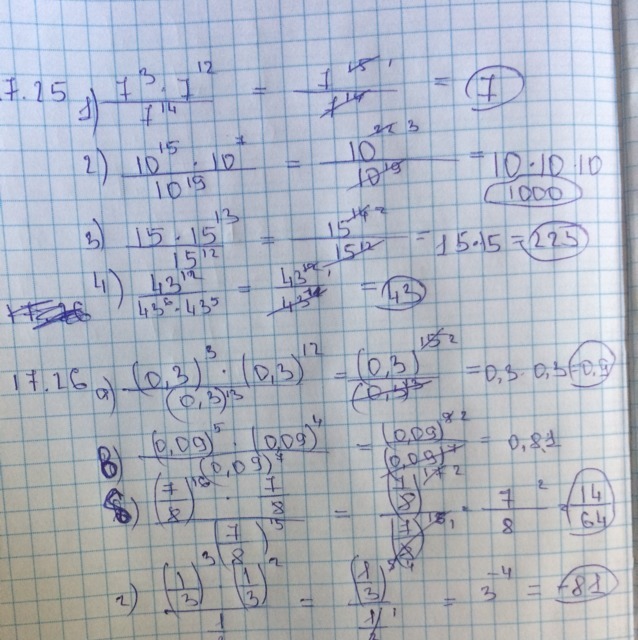 7.25 1) 7^3 · 7^12 / 7^14 = 7^15 1 / 7^14 = 7
2) 10^15 · 10^7 / 10^19 = 10^22 3 / 10^19 = 10·10·10
1000
3) 15 · 15^13 / 15^12 = 15^14 2 / 15^12 = 15·15 = 225
4) 43^12 / 43^6 · 43^5 = 43^12 1 / 43^11 = 43
17.26 а) (0,3)^3 · (0,3)^12 / (0,3)^13 = (0,3)^15 2 / (0,3)^13 = 0,3 · 0,3 = 0,9
в) (0,09)^5 · (0,09)^4 / (0,09)^7 = (0,09)^9 2 / (0,09)^7 = 0,81
б) (7/8)^16 · 7/8 / (7/8)^15 = (7/8)^17 2 / (7/8)^15 1 = 7/8 2 = 14/64
г) (1/3)^3 · (1/3)^2 / 1 = (1/3)^5 4 / 1/3 1 = 3^-4 = -81